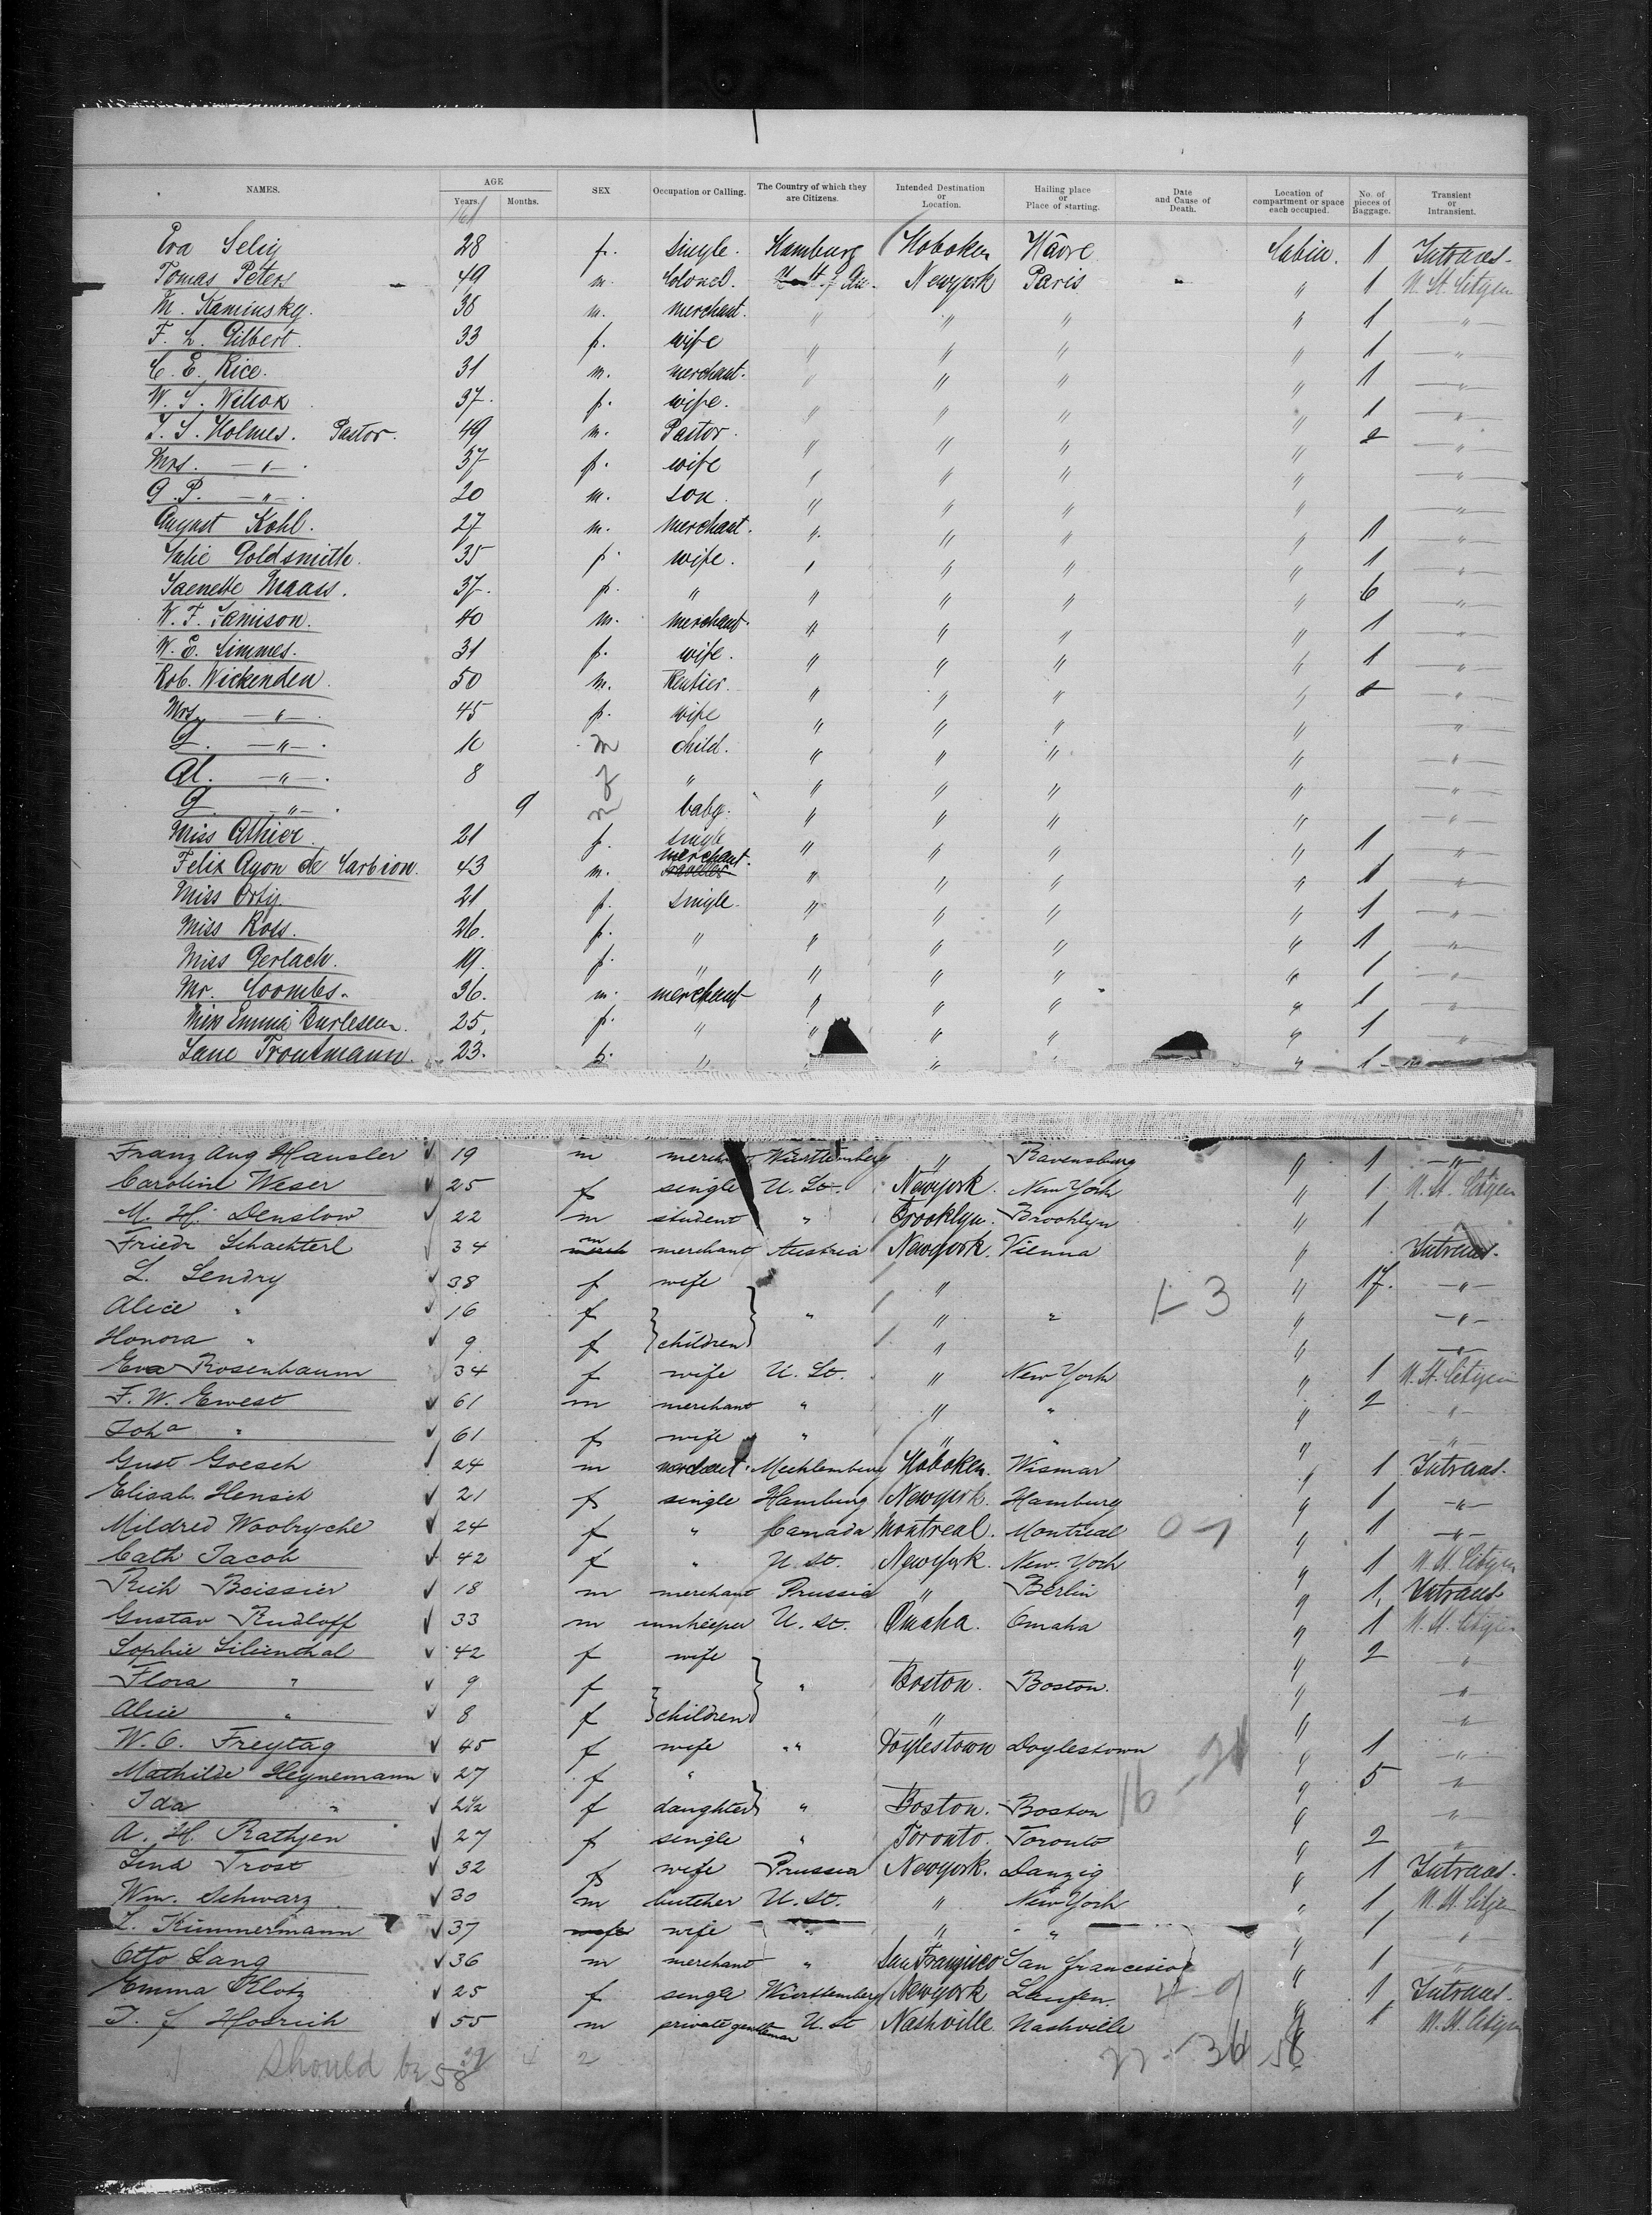 NAMES. AGE Years. Months. SEX Occupation or Calling. The Country of which they are Citizens. Intended Destination or Location. Hailing place or Place of starting. Date and Cause of Death. Location of compartment or space each occupied. No. of pieces of Baggage. Transient or Intransient.
Eva Selig 28 f. single. Hamburg Hoboken Hâvre Cabin. 1 Intrans.
Tomas Peters 49 m. Colonel. Newyork Paris " 1 U. St. Citizen
M. Kaminsky. 38 m. merchant. " " " " 1 "
F. L. Gilbert. 33 f. wife " " " " 1 "
C. E. Rice. 31 m. merchant. " " " " 1 "
W. S. Wilcox 37. f. wife. " " " " 1 "
T. S. Holmes. Pastor. 49 m. Pastor. " " " " 2 "
Mrs. — " — . 37 f. wife " " " " "
G. P. — " — . 20 m. son. " " " " "
August Kohl. 27 m. merchant. " " " " 1 "
Julie Goldsmith. 35 f. wife. " " " " 1 "
Jaenette Maass. 37. f. " " " " " 6 "
W. F. Jamison. 40 m. merchant. " " " " 1 "
W. E. Simmes. 31 f. wife. " " " " 1 "
Rob. Wickenden. 50 m. Rentier. " " " " "
Mrs — " — . 45 f. wife " " " " "
— " — . 10 m child. " " " " "
Al. — " — . 8 f " " " " " "
— " — . 9 m baby. " " " " "
Miss Athier. 21 f. single " " " " 1 "
Felix Ayon de Carbion. 43 m. merchant. " " " " 1 "
Miss Orty. 21 f. single. " " " " 1 "
Miss Ross. 26. f. " " " " " 1 "
Miss Gerlach. 19. f. " " " " " 1 "
Mr. Coombs. 36. m. merchant " " " " 1 "
Miss Emma Burleson. 25. f. " " " " " 1 "
Jane Troutmann. 23. f. " " " 1
Franz Aug Hausler 19 m Württemberg " Ravensburg " 1 "
Caroline Weser 25 f single U. St. Newyork. New York " 1 U. St. Citizen
M. H. Denslow 22 m student " Brooklyn. Brooklyn " 1
Friedr Schachterl 34 m merchant Austria Newyork. Vienna " Intrans.
L. Lendry 38 f wife " " 17. "
Alice " 16 f " " " 1-3 " "
Honora " 9 f children " " "
Eva Rosenbaum 34 f wife U. St. " New York " 1 U. St. Citizen
F. W. Ewest 61 m merchant " " " " 2 "
Joha " 61 f wife " " " " "
Gust Goesch 24 m merchant. Mecklenburg Hoboken. Wismar " 1 Intrans.
Elisab. Hensch 21 f single Hamburg Newyork. Hamburg " 1 "
Mildred Woobryche 24 f " Canada Montreal. Montreal 0-1 " 1 "
Cath Jacob 42 f " U. St. Newyork. New York " 1 U. St. Citizen
Rich Beissier 18 m merchant Prussia " Berlin " 1 Intrans
Gustav Rudloff 33 m innkeeper U. St. Omaha. Omaha " 1 U. St. Citizen
Sophie Lilienthal 42 f wife " 2 "
Flora " 9 f " Boston. Boston. " "
Alice " 8 f children " " "
W. C. Freytag 45 f wife " Doylestown Doylestown " 1 "
Mathilde Heynemann 27 f " 16 - 21 " 5 "
Ida " 2½ f daughter " Boston. Boston " "
A. H. Rathjen 27 f single " Toronto. Toronto " 2 "
Lina Trost 32 f wife Prussia Newyork. Danzig " 1 Intrans.
Wm. Schwarz 30 m butcher U. St. " New York " 1 U. St. Citizen
L. Kümmermann 37 wife " " " " 1 "
Otto Lang 36 m merchant " San Francisco San Francisco " 1 "
Emma Klotz 25 f single Württemberg Newyork Laufen. 4-9 " 1 Intrans.
T. J. Hodrich 55 m private gentleman U. St Nashville Nashville " 1 U. St. Citizen
Should be 58 4 2 22 - 36 58